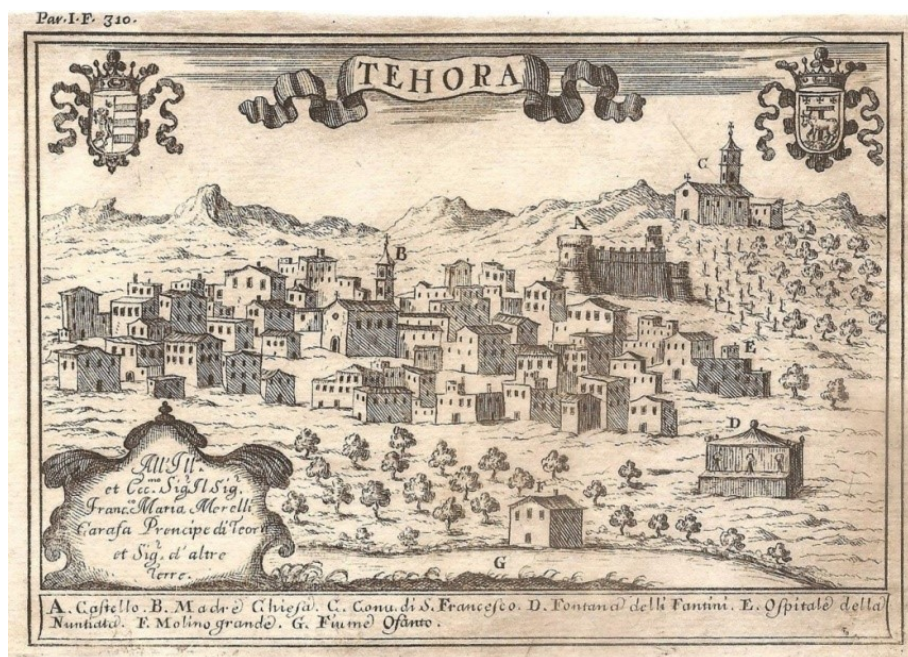 Par. I. F. 310.
TEHORA
C
A
B
E
D
All' Ill.
et Ecc.mo Sig.r Il Sig.r
Franc.co Maria Merelli
Carafa Prencipe di Teora
et Sig.r d'altre
Terre.
F
G
A. Castello. B. Madre Chiesa. C. Conu. di S. Francesco. D. Fontana delli Fantini. E. Ospitale della
Nuntiata. F. Molino grande. G. Fiume Ofanto.